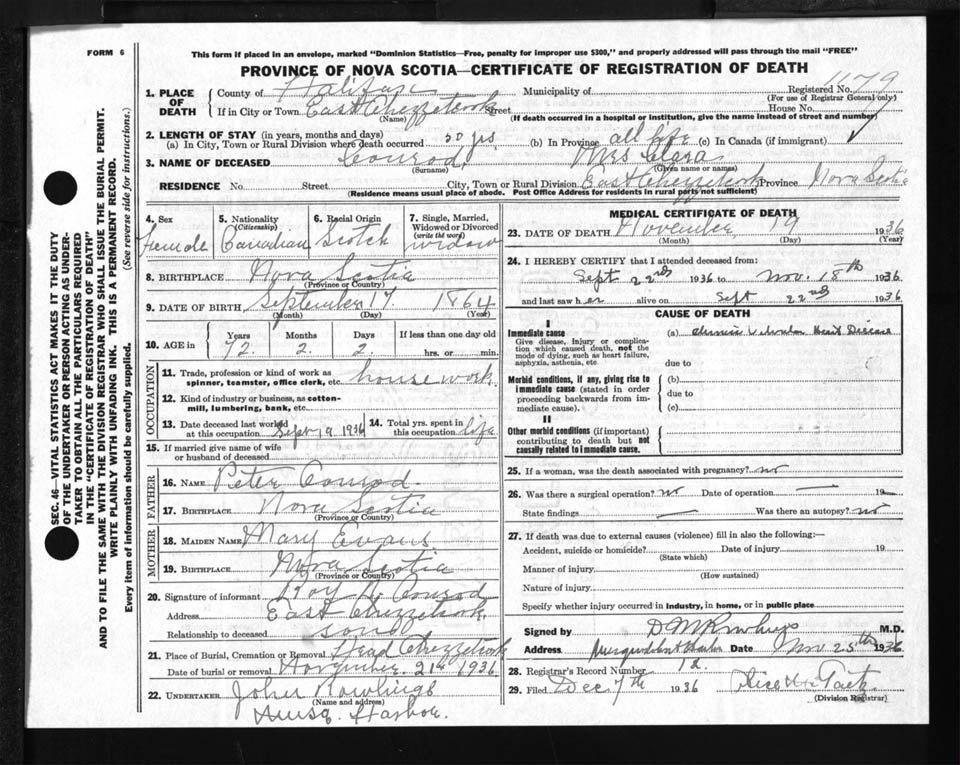 FORM 6
This form if placed in an envelope, marked "Dominion Statistics—Free, penalty for improper use $300," and properly addressed will pass through the mail "FREE"
PROVINCE OF NOVA SCOTIA—CERTIFICATE OF REGISTRATION OF DEATH
1. PLACE OF DEATH County of Halifax Municipality of Registered No. 1179
(For use of Registrar General only)
If in City or Town East Chezzetcook Street House No.
(Name) (If death occurred in a hospital or institution, give the name instead of street and number)
2. LENGTH OF STAY (in years, months and days)
(a) In City, Town or Rural Division where death occurred 50 yrs (b) In Province all life (c) In Canada (if immigrant)
3. NAME OF DECEASED Conrod Mrs Clara
(Surname) (Given name or names)
RESIDENCE No. Street City, Town or Rural Division East Chezzetcook Province Nova Scotia
(Residence means usual place of abode. Post Office Address for residents in rural parts not sufficient)
4. Sex 5. Nationality (Citizenship) 6. Racial Origin 7. Single, Married, Widowed or Divorced (write the word)
Female Canadian Scotch widow
8. BIRTHPLACE Nova Scotia
(Province or Country)
9. DATE OF BIRTH September 17. 1864
(Month) (Day) (Year)
10. AGE in Years Months Days If less than one day old
72. 2. 2. hrs. or min.
OCCUPATION
11. Trade, profession or kind of work as spinner, teamster, office clerk, etc. house work.
12. Kind of industry or business, as cotton-mill, lumbering, bank, etc.
13. Date deceased last worked at this occupation Sept 19 1936 14. Total yrs. spent in this occupation life
15. If married give name of wife or husband of deceased
FATHER
16. NAME Peter Conrod.
17. BIRTHPLACE Nova Scotia
(Province or Country)
MOTHER
18. MAIDEN NAME Mary Evans
19. BIRTHPLACE Nova Scotia
(Province or Country)
20. Signature of informant Roy Conrod
Address East Chezzetcook.
Relationship to deceased son
21. Place of Burial, Cremation or Removal Head Chezzetcook
Date of burial or removal November 21st 1936
22. UNDERTAKER John Rowlings
(Name and address)
Musq. Harbor.
MEDICAL CERTIFICATE OF DEATH
23. DATE OF DEATH November 19 1936
(Month) (Day) (Year)
24. I HEREBY CERTIFY that I attended deceased from:
Sept 22nd 1936 to Nov. 18th 1936
and last saw her alive on Sept 22nd 1936
CAUSE OF DEATH
I
Immediate cause
Give disease, injury or complication which caused death, not the mode of dying, such as heart failure, asphyxia, asthenia, etc.
(a) Chronic Valvular Heart Disease
due to
Morbid conditions, if any, giving rise to immediate cause (stated in order proceeding backwards from immediate cause).
(b)
due to
(c)
II
Other morbid conditions (if important) contributing to death but not causally related to immediate cause.
25. If a woman, was the death associated with pregnancy? no
26. Was there a surgical operation? no Date of operation — 19
State findings — Was there an autopsy? no
27. If death was due to external causes (violence) fill in also the following:—
Accident, suicide or homicide? Date of injury 19
(State which)
Manner of injury
(How sustained)
Nature of injury
Specify whether injury occurred in industry, in home, or in public place
Signed by M.D.
Address Musquodoboit Harbor Date Nov 25th 1936
28. Registrar's Record Number 12.
29. Filed Dec 7th 1936 Alice Gaetz
(Division Registrar)
SEC. 46—VITAL STATISTICS ACT MAKES IT THE DUTY
OF THE UNDERTAKER OR PERSON ACTING AS UNDERTAKER TO OBTAIN ALL THE PARTICULARS REQUIRED
IN THE "CERTIFICATE OF REGISTRATION OF DEATH"
AND TO FILE THE SAME WITH THE DIVISION REGISTRAR WHO SHALL ISSUE THE BURIAL PERMIT.
WRITE PLAINLY WITH UNFADING INK. THIS IS A PERMANENT RECORD.
Every item of information should be carefully supplied. (See reverse side for instructions.)